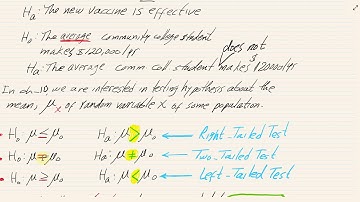 Ha: The new vaccine is effective
Ho: The average community college student
makes $120,000/yr
does not
Ha: The average comm coll student makes $120000/yr
In ch_10 we are interested in testing hypothesis about the
mean, μx of random variable X of some population.
Ho μ≤μo Ha: μ>μo ← Right-Tailed Test
Ho: μ=μo Ha: μ≠μo ← Two-Tailed Test
Ho μ≥μo Ha: μ<μo ← Left-Tailed Test